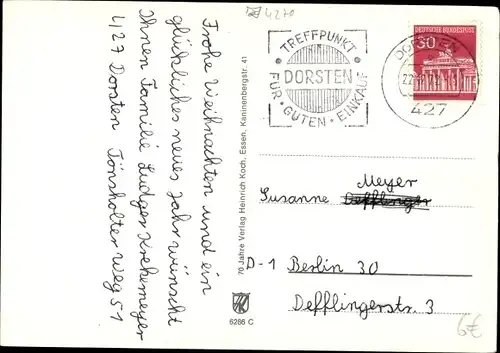 4270
Frohe Weihnachten und ein
glückliches neues Jahr wünscht
Ihnen Familie Ludger Kirchmeyer
427 Dorsten Tönsholter Weg 51
70 Jahre Verlag Heinrich Koch, Essen, Kaninenbergstr. 41
6266 C
TREFFPUNKT
DORSTEN
FÜR · GUTEN · EINKAUF
DEUTSCHE BUNDESPOST
30
DORSTEN
427
Meyer
Susanne Defflinger
D-1 Berlin 30
Defflingerstr. 3
6€